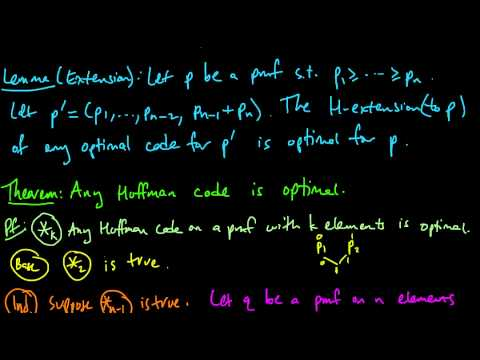 Lemma (Extension): Let p be a pmf s.t. p₁ ≥ ⋯ ≥ pₙ.
Let p' = (p₁, ..., pₙ₋₂, pₙ₋₁ + pₙ). The H-extension (to p)
of any optimal code for p' is optimal for p.
Theorem: Any Huffman code is optimal.
Pf: *ₖ Any Huffman code on a pmf with k elements is optimal.
0 1
p₁ p₂
Base *₂ is true.
0 1
Ind. Suppose *ₙ₋₁ is true. Let q be a pmf on n elements